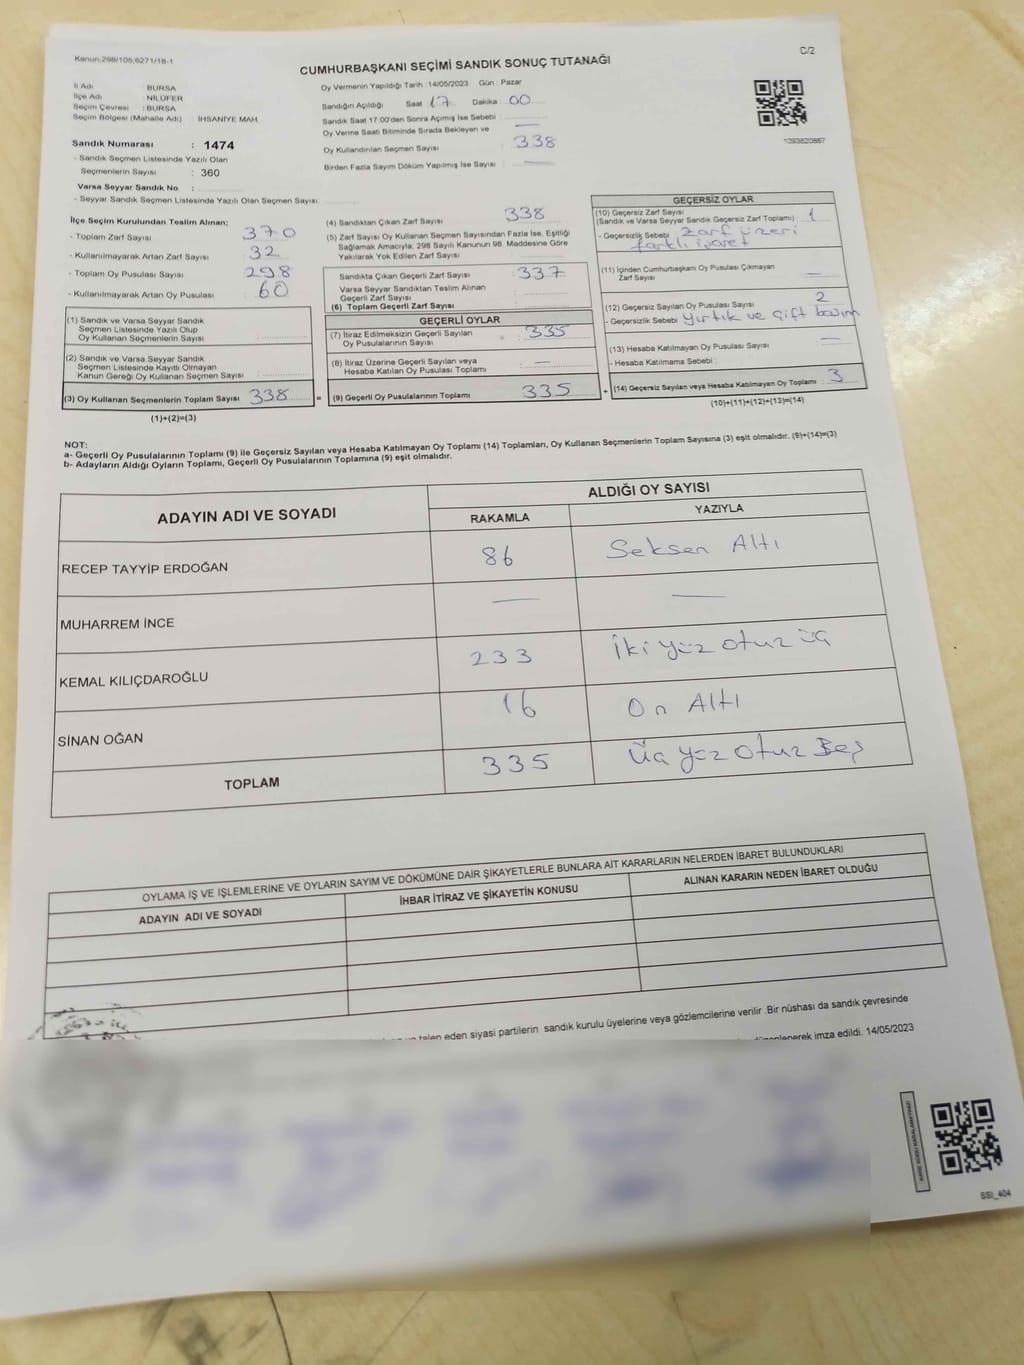 Kanun,298/105,6271/18-1
C/2
CUMHURBAŞKANI SEÇİMİ SANDIK SONUÇ TUTANAĞI
İl Adı : BURSA
İlçe Adı : NİLÜFER
Seçim Çevresi : BURSA
Seçim Bölgesi (Mahalle Adı) : İHSANİYE MAH.
Sandık Numarası : 1474
- Sandık Seçmen Listesinde Yazılı Olan
Seçmenlerin Sayısı : 360
Varsa Seyyar Sandık No :
- Seyyar Sandık Seçmen Listesinde Yazılı Olan Seçmen Sayısı:
Oy Vermenin Yapıldığı Tarih :14/05/2023 Gün : Pazar
Sandığın Açıldığı Saat 17 Dakika 00
Sandık Saat 17:00'den Sonra Açımış İse Sebebi :
Oy Verme Saati Bitiminde Sırada Bekleyen ve —
Oy Kullandırılan Seçmen Sayısı : 338
Birden Fazla Sayım Döküm Yapılmış İse Sayısı : —
1093820867
İlçe Seçim Kurulundan Teslim Alınan;
- Toplam Zarf Sayısı : 370
- Kullanılmayarak Artan Zarf Sayısı : 32
- Toplam Oy Pusulası Sayısı : 298
- Kullanılmayarak Artan Oy Pusulası : 60
(1) Sandık ve Varsa Seyyar Sandık
Seçmen Listesinde Yazılı Olup
Oy Kullanan Seçmenlerin Sayısı :
(2) Sandık ve Varsa Seyyar Sandık
Seçmen Listesinde Kayıtlı Olmayan
Kanun Gereği Oy Kullanan Seçmen Sayısı :
(3) Oy Kullanan Seçmenlerin Toplam Sayısı : 338 =
(1)+(2)=(3)
(4) Sandıktan Çıkan Zarf Sayısı : 338
(5) Zarf Sayısı Oy Kullanan Seçmen Sayısından Fazla İse, Eşitliği
Sağlamak Amacıyla, 298 Sayılı Kanunun 98. Maddesine Göre
Yakılarak Yok Edilen Zarf Sayısı :
Sandıkta Çıkan Geçerli Zarf Sayısı : 337
Varsa Seyyar Sandıktan Teslim Alınan
Geçerli Zarf Sayısı :
(6) Toplam Geçerli Zarf Sayısı :
GEÇERLİ OYLAR
(7) İtiraz Edilmeksizin Geçerli Sayılan
Oy Pusulalarının Sayısı : 335
(8) İtiraz Üzerine Geçerli Sayılan veya
Hesaba Katılan Oy Pusulası Toplamı : —
(9) Geçerli Oy Pusulalarının Toplamı : 335 +
GEÇERSİZ OYLAR
(10) Geçersiz Zarf Sayısı
(Sandık ve Varsa Seyyar Sandık Geçersiz Zarf Toplamı) : 1
- Geçersizlik Sebebi : Zarf üzeri
farklı işaret
(11) İçinden Cumhurbaşkanı Oy Pusulası Çıkmayan
Zarf Sayısı : —
(12) Geçersiz Sayılan Oy Pusulası Sayısı : 2
- Geçersizlik Sebebi : Yırtık ve çift basım
(13) Hesaba Katılmayan Oy Pusulası Sayısı : —
- Hesaba Katılmama Sebebi :
(14) Geçersiz Sayılan veya Hesaba Katılmayan Oy Toplamı : 3
(10)+(11)+(12)+(13)=(14)
NOT:
a- Geçerli Oy Pusulalarının Toplamı (9) ile Geçersiz Sayılan veya Hesaba Katılmayan Oy Toplamı (14) Toplamları, Oy Kullanan Seçmenlerin Toplam Sayısına (3) eşit olmalıdır. (9)+(14)=(3)
b- Adayların Aldığı Oyların Toplamı, Geçerli Oy Pusulalarının Toplamına (9) eşit olmalıdır.
ADAYIN ADI VE SOYADI
ALDIĞI OY SAYISI
RAKAMLA YAZIYLA
RECEP TAYYİP ERDOĞAN 86 Seksen Altı
MUHARREM İNCE — —
KEMAL KILIÇDAROĞLU 233 İki yüz otuz üç
SİNAN OĞAN 16 On Altı
TOPLAM 335 Üç yüz otuz Beş
OYLAMA İŞ VE İŞLEMLERİNE VE OYLARIN SAYIM VE DÖKÜMÜNE DAİR ŞİKAYETLERLE BUNLARA AİT KARARLARIN NELERDEN İBARET BULUNDUKLARI
ADAYIN ADI VE SOYADI İHBAR İTİRAZ VE ŞİKAYETİN KONUSU ALINAN KARARIN NEDEN İBARET OLDUĞU
talep eden siyasi partilerin sandık kurulu üyelerine veya gözlemcilerine verilir .Bir nüshası da sandık çevresinde
düzenlenerek imza edildi. 14/05/2023
SSI_404